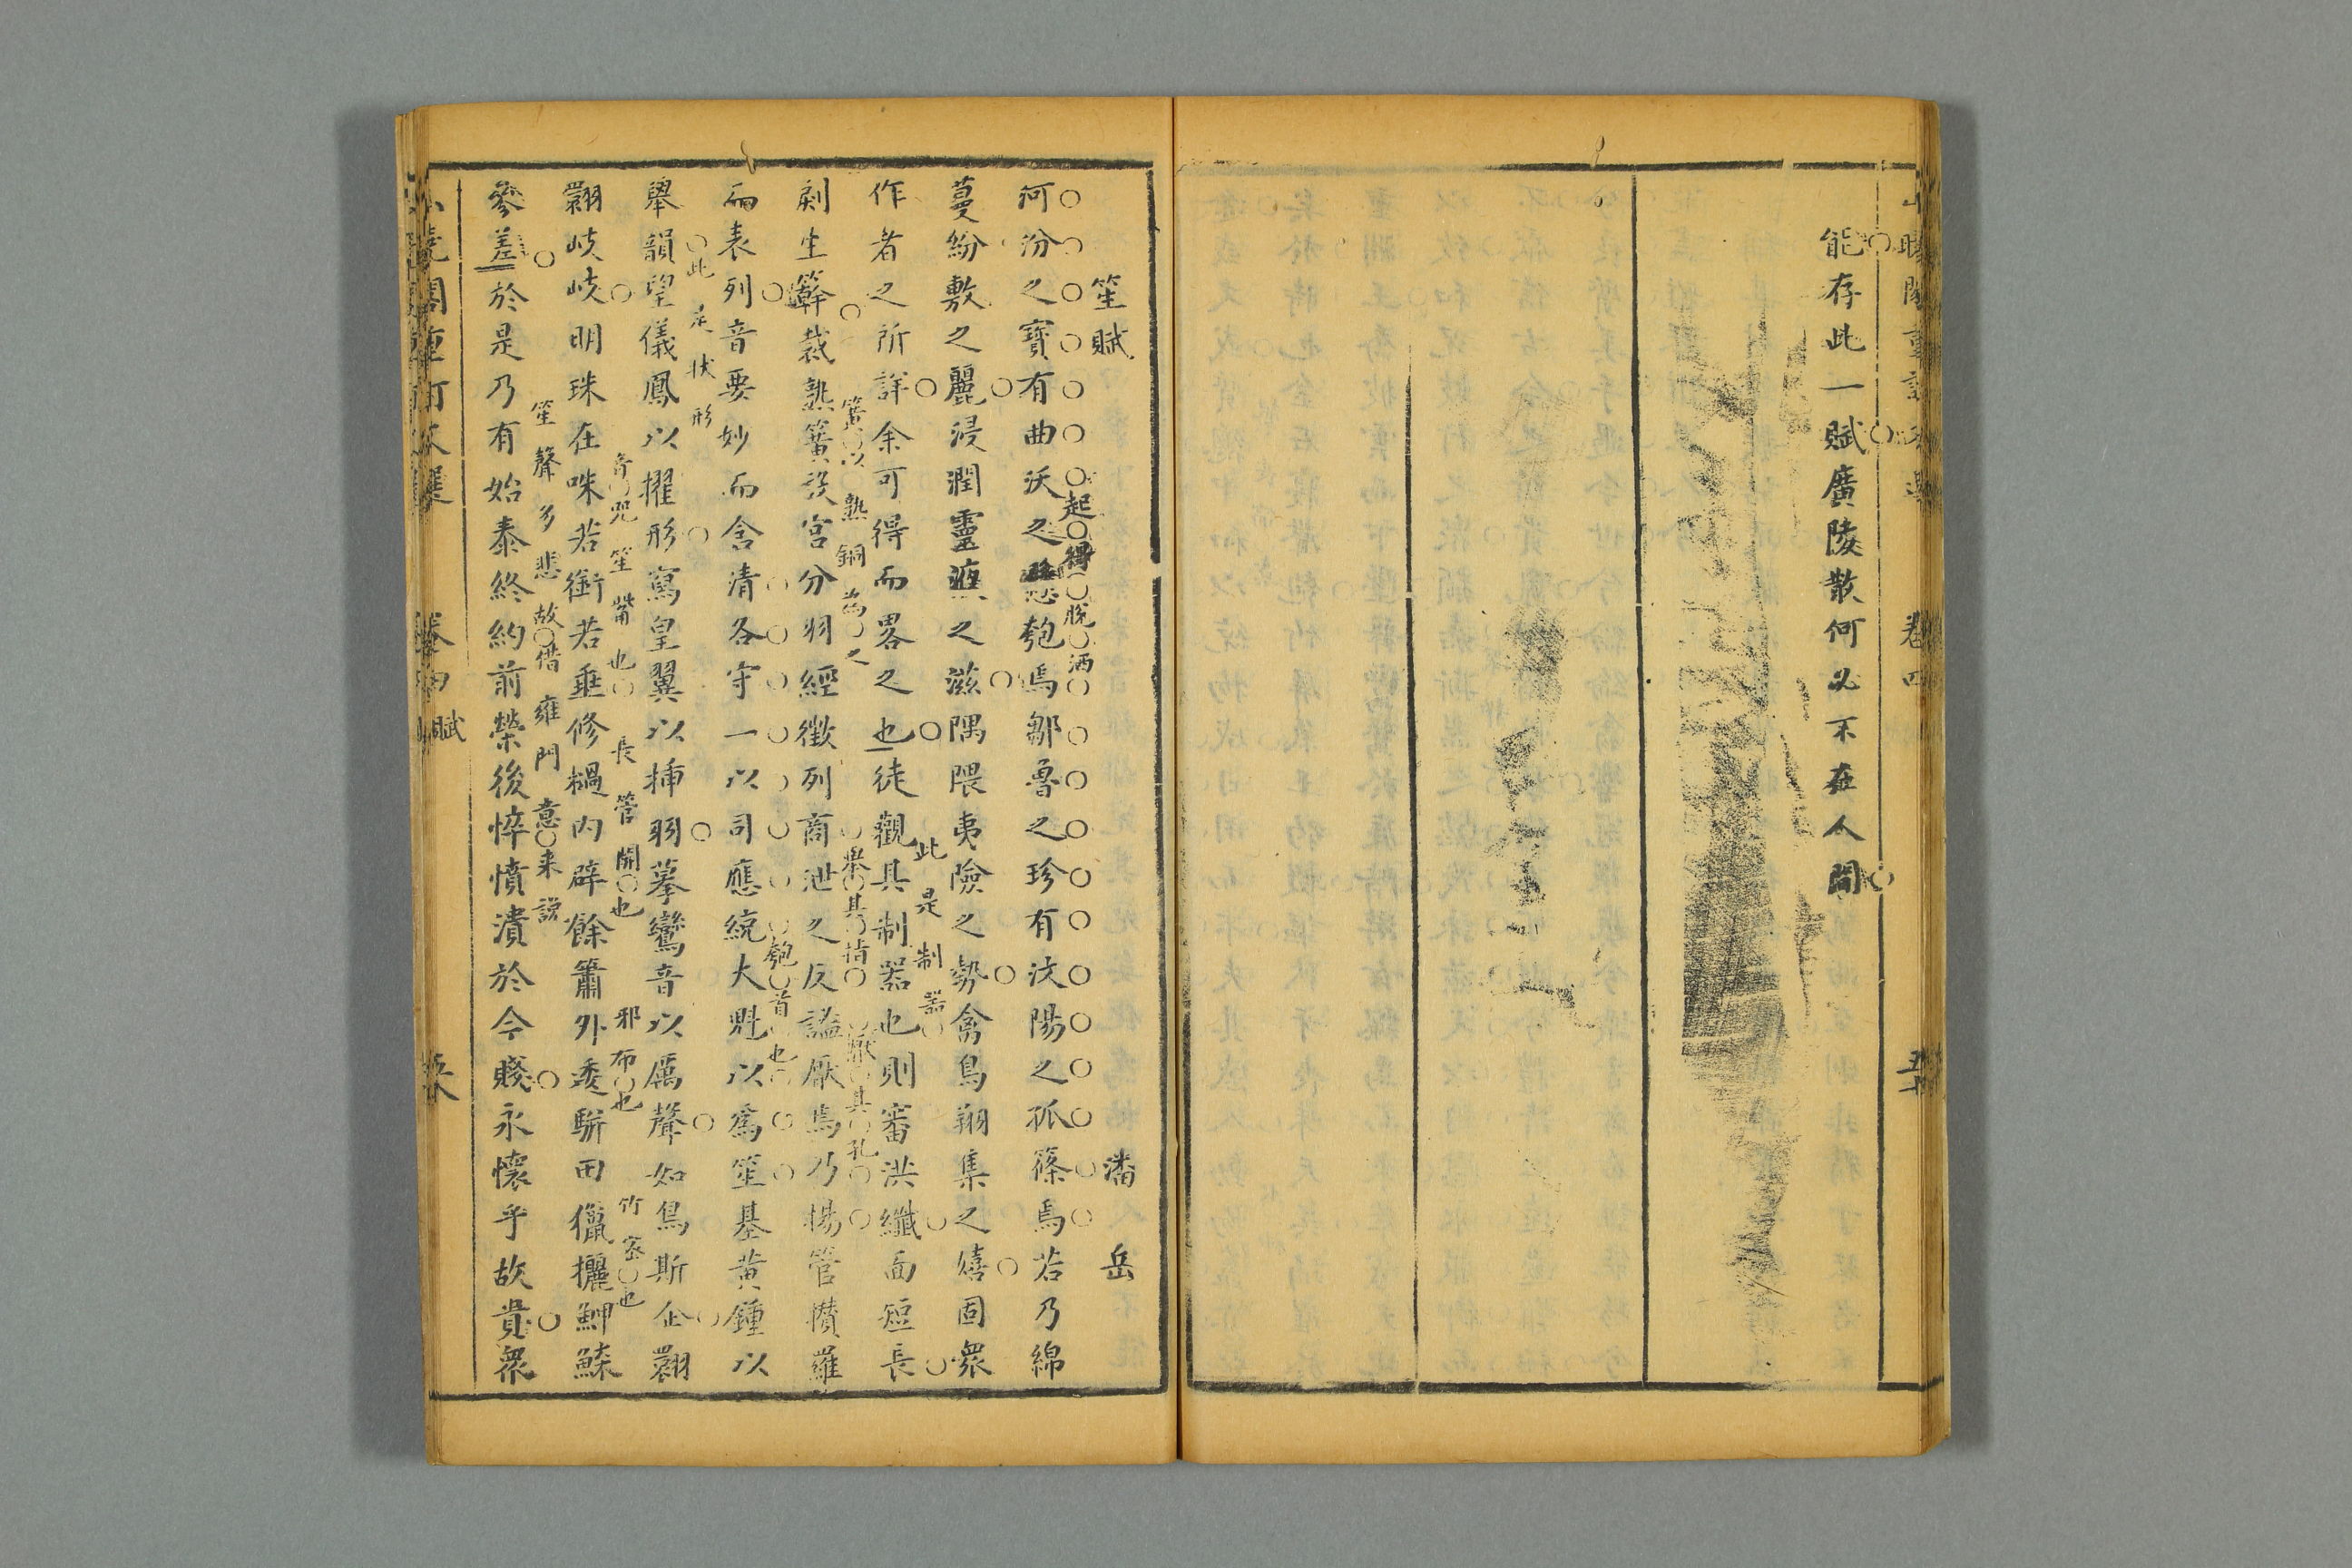 能存此一賦廣陵散何必不在人間
卷四
笙賦
潘岳
河汾之寶有曲沃之懸匏焉鄒魯之珍有汶陽之孤篠焉若乃綿
起得脫洒
蔓紛敷之麗浸潤靈液之滋隅隈夷險之勢禽鳥翔集之嬉固衆
作者之所詳余可得而畧之也徒觀其制器也則審洪纖面短長
此是制器
剫生簳裁熟簧設宮分羽經徵列商泄之反謐厭焉乃揚管攢羅
簧以熟銅為之
厭其孔
而表列音要妙而含清各守一以司應統大魁以為笙基黄鍾以
匏首也
舉韻望儀鳳以擢形寫皇翼以揷羽摹鸞音以厲聲如鳥斯企翾
此是狀形
翾岐岐明珠在咮若銜若垂修檛内辟餘簫外逶駢田獵攦鯽鰈
笙嘴也
長管開也
邪布也
竹密也
參差於是乃有始泰終約前榮後悴憤潰於今賤永懷乎故貴衆
笙聲多悲故借雍門意来說
賦